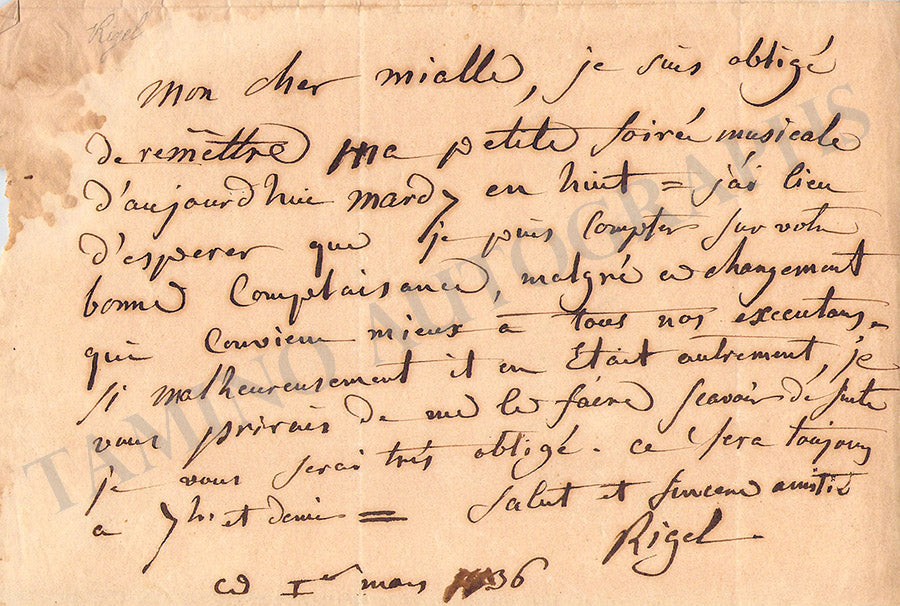 Rigel
mon cher mialle, je suis obligé
de remettre ma petite soirée musicale
d'aujourd'hui mardy en huit = j'ai lieu
d'esperer que je puis compter sur votre
bonne complaisance, malgré ce changement
qui convient mieux à tous nos executans =
si malheureusement il en était autrement, je
vous prirais de me le faire scavoir de suite
je vous serai très obligé. ce sera toujours
a 7 hs et demie = salut et sincere amitié
Rigel.
ce 1er mars 36
TAMINO AUTOGRAPHS